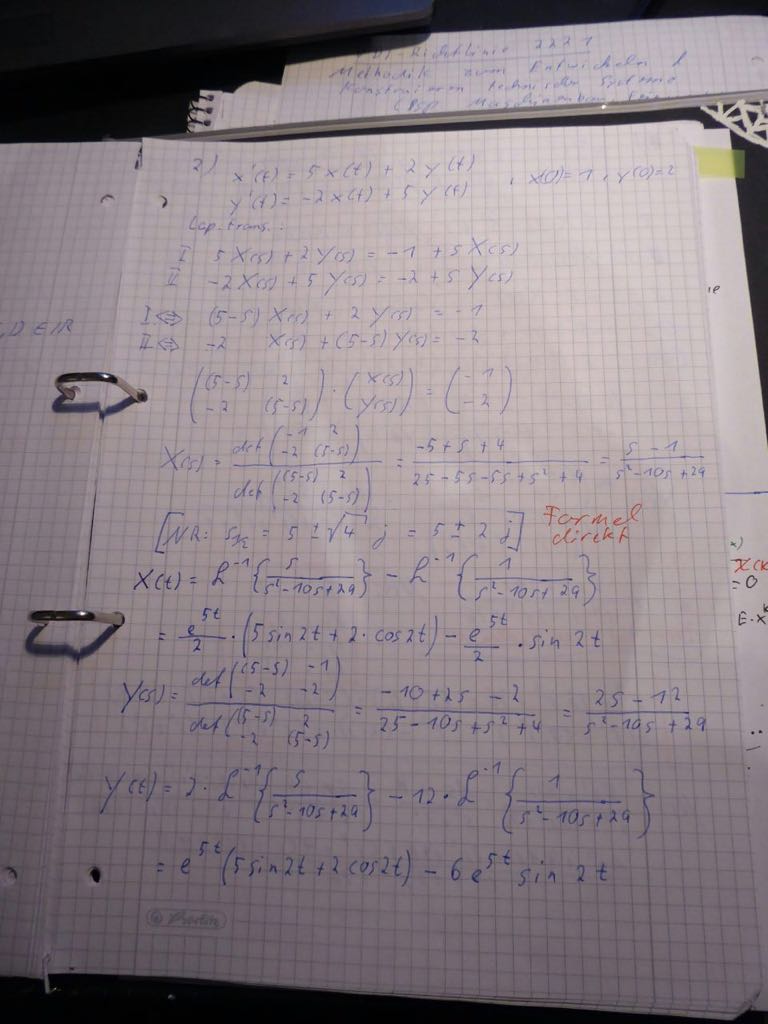 VDI-Richtlinie 2221
Methodik zum Entwickeln &
Konstruieren technischer Systeme
2) x'(t) = 5x(t) + 2y(t)
y'(t) = -2x(t) + 5y(t) , x(0)=1, y(0)=2
Lap. trans.:
I 5X(s) + 2Y(s) = -1 + sX(s)
II -2X(s) + 5Y(s) = -2 + sY(s)
I ⇔ (5-s) X(s) + 2 Y(s) = -1
II ⇔ -2 X(s) + (5-s) Y(s) = -2
((5-s) 2 / -2 (5-s)) · (X(s) / Y(s)) = (-1 / -2)
X(s) = det(-1 2 / -2 (5-s)) / det((5-s) 2 / -2 (5-s)) = (-5+s+4) / (25-5s-5s+s²+4) = (s-1) / (s²-10s+29)
[NR: s½ = 5 ± √4 j = 5 ± 2j] Formel
direkt
X(t) = L⁻¹{s / (s²-10s+29)} - L⁻¹{1 / (s²-10s+29)}
= e^5t/2 · (5 sin 2t + 2 · cos 2t) - e^5t/2 · sin 2t
Y(s) = det((5-s) -1 / -2 -2) / det((5-s) 2 / -2 (5-s)) = (-10+2s -2) / (25-10s+s²+4) = (2s-12) / (s²-10s+29)
Y(t) = 2 · L⁻¹{s / (s²-10s+29)} - 12 · L⁻¹{1 / (s²-10s+29)}
= e^5t (5 sin 2t + 2 cos 2t) - 6 e^5t sin 2t
,D ∈ R
= 0